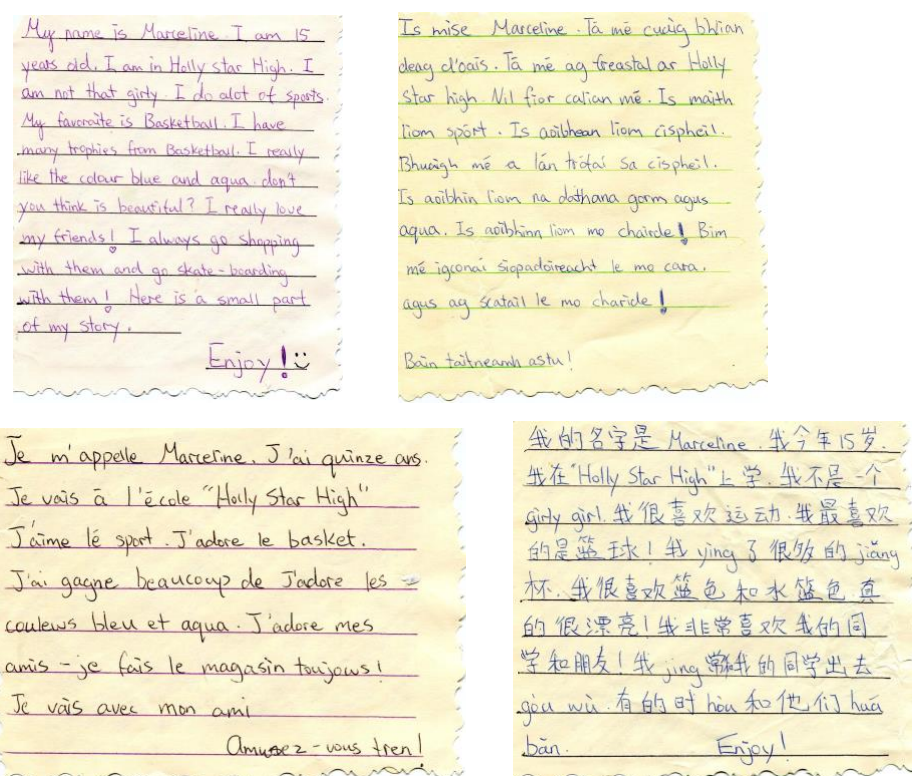 My name is Marceline. I am 15
years old. I am in Holly star High. I
am not that girly. I do alot of sports.
My favoraite is Basketball. I have
many trophies from Basketball. I really
like the colour blue and aqua. don't
you think is beautiful? I really love
my friends! I always go shopping
with them and go skate-boarding
with them! Here is a small part
of my story.
Enjoy!
Is mise Marceline. Tá mé cuúig bhlian
deag d'oais. Tá mé ag freastal ar Holly
Star high. Níl fíor calian mé. Is maith
liom spórt. Is aoibhean liom cispheil.
Bhuaigh mé a lán trófaí sa cispheil.
Is aoibhin liom na dathana gorm agus
aqua. Is aoibhinn liom mo chairde! Bím
mé igconaí siopadóireacht le mo cara.
agus ag scatail le mo charide!
Bain taitneamh astu!
Je m'appelle Marceline. J'ai quinze ans.
Je vais à l'école "Holly Star High"
J'aime lé sport. J'adore le basket.
J'ai gagne beaucoup de J'adore les
couleurs bleu et aqua. J'adore mes
amis - je fais le magasin toujours!
Je vais avec mon ami
Amusez-vous tren!
我的名字是 Marceline. 我今年15岁.
我在"Holly Star High"上学. 我不是一个
girly girl. 我很喜欢运动. 我最喜欢
的是篮球! 我 yíng 了很多的 jiǎng
杯. 我很喜欢篮色和水篮色 真
的很漂亮! 我非常喜欢我的同
学和朋友! 我 jing 常和我的同学出去
gòu wù. 有的时 hòu 和他们 huá
bǎn. Enjoy!